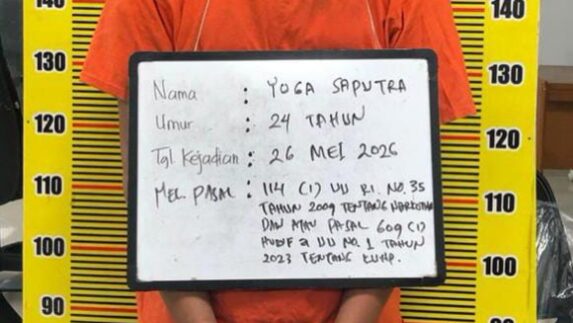 140
130
120
110
100
90
Nama : YOGA SAPUTRA
Umur : 24 TAHUN
Tgl Kejadian : 26 MEI 2026
MEL PASAL : 114 (1) UU RI. NO. 35
TAHUN 2009 TENTANG NARKOTIKA
DAN ATAU PASAL 609 (1)
HURUF a UU NO. 1 TAHUN
2023 TENTANG KUHP.
140
130
120
110
100
90